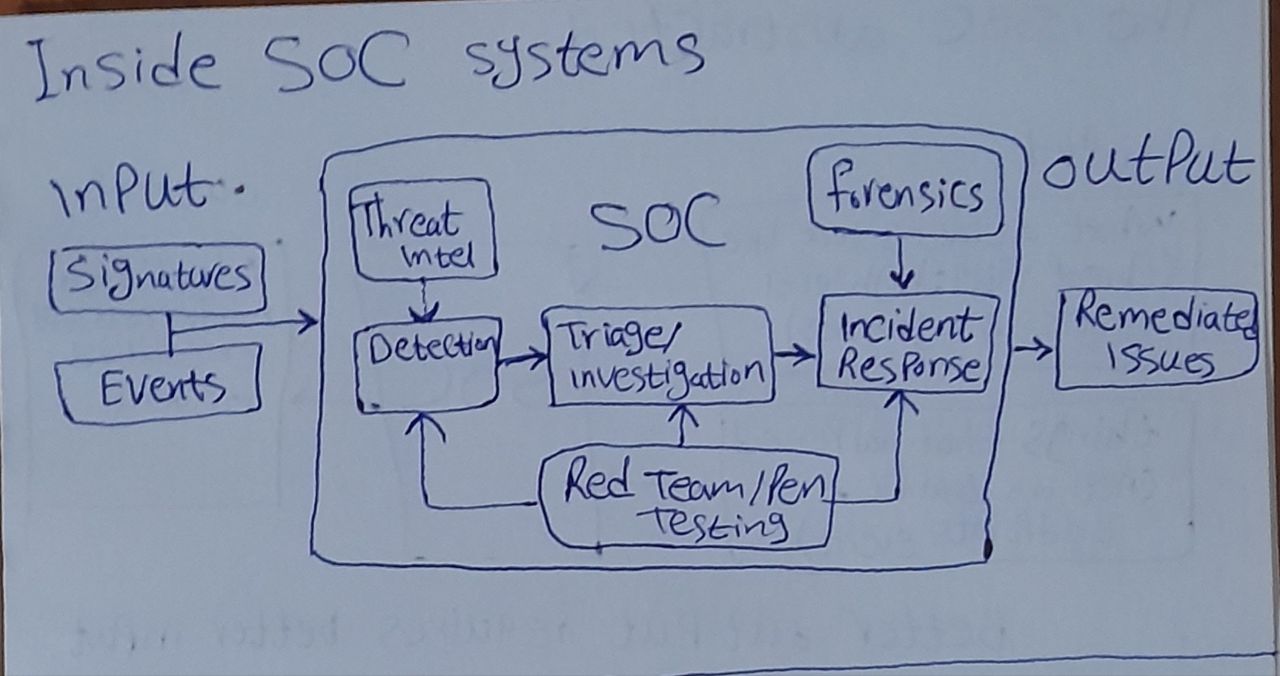 Inside SOC systems
INPUT.
Signatures
Events
Threat
Intel
Detection
SOC
Triage/
investigation
forensics
Incident
Response
Red Team/Pen
Testing
OUTPUT
Remediated
Issues